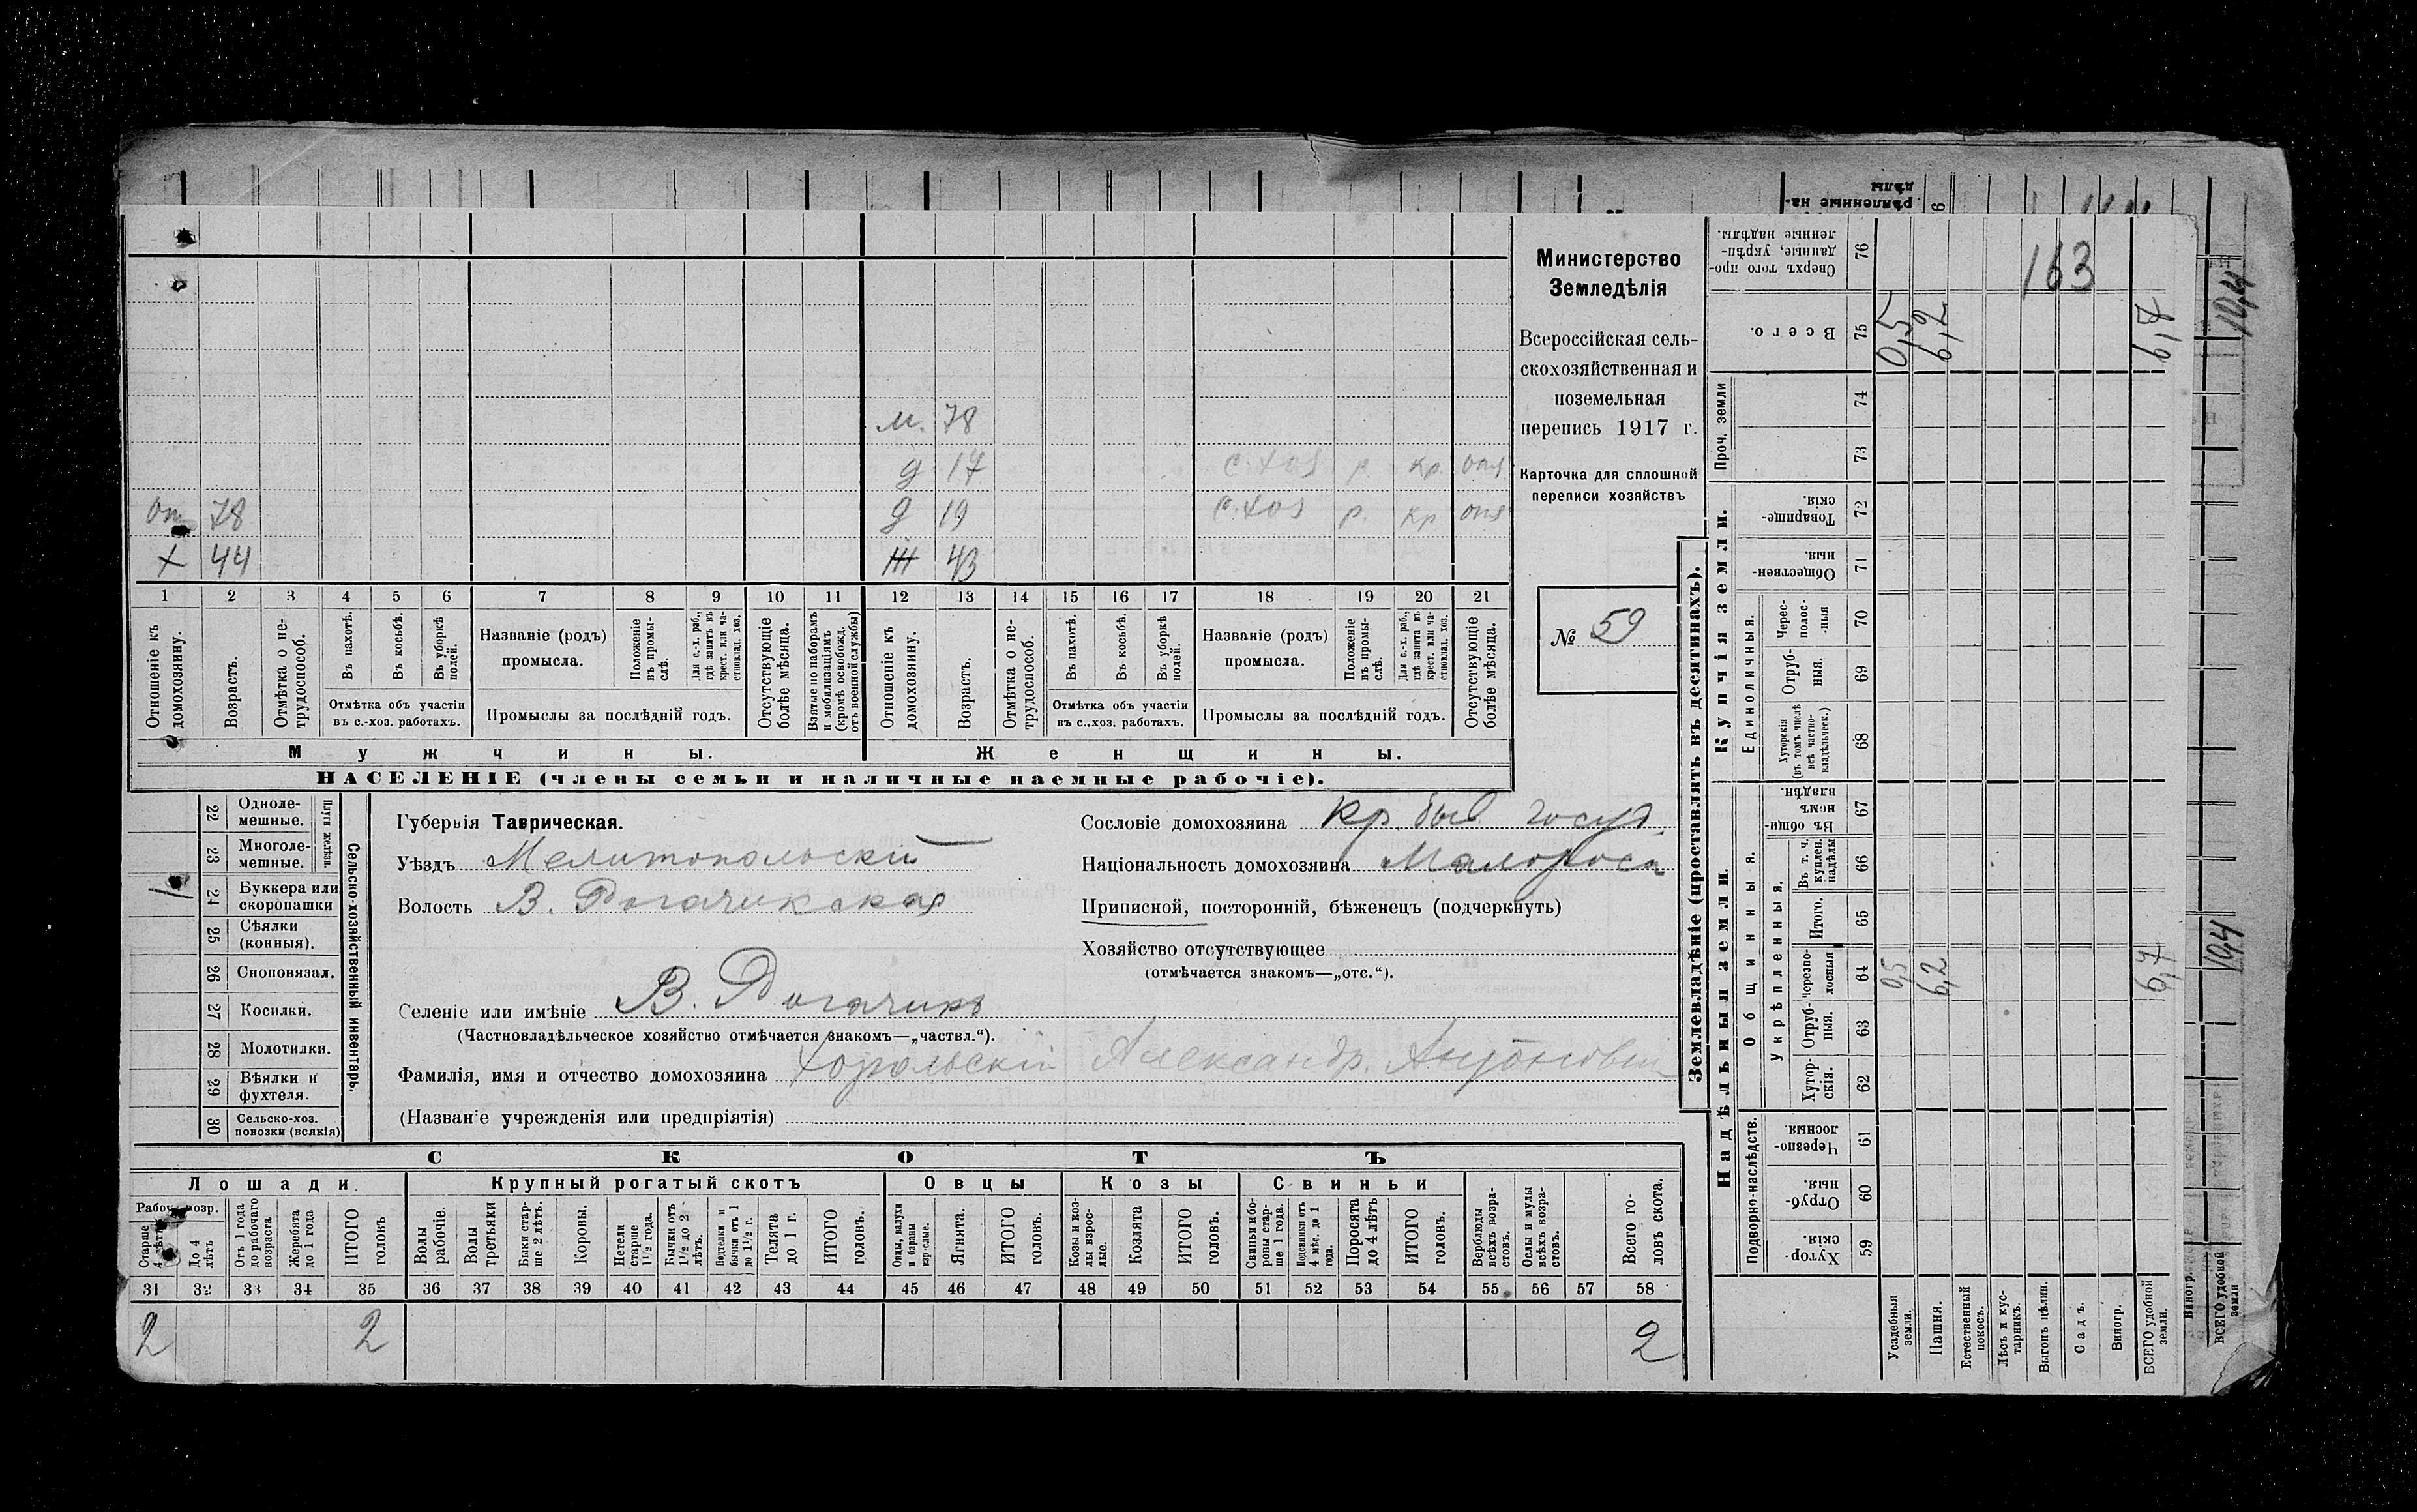 Министерство
Земледѣлія
Всероссійская сель-
скохозяйственная и
поземельная
перепись 1917 г.
Карточка для сплошной
переписи хозяйствъ
№ 59
м. 78
д 17 с.хоз р. кр. отх
оп. 78 д 19 с.хоз р. кр отх
х 44 ж 43
1 2 3 4 5 6 7 8 9 10 11 12 13 14 15 16 17 18 19 20 21
Отношеніе къ домохозяину.
Возрастъ.
Отмѣтка о не-трудоспособ.
Въ пахотѣ.
Въ косьбѣ.
Въ уборкѣ полей.
Отмѣтка объ участіи
въ с.-хоз. работахъ.
Названіе (родъ)
промысла.
Положеніе въ промы-слѣ.
Для с.-х. раб., гдѣ занятъ въ крест. или ча-стновлад. хоз.
Промыслы за послѣдній годъ.
Отсутствующіе болѣе мѣсяца.
Взятые по наборамъ и мобилизаціямъ (кромѣ освобожд. отъ военной службы)
Отношеніе къ домохозяину.
Возрастъ.
Отмѣтка о не-трудоспособ.
Въ пахотѣ.
Въ косьбѣ.
Въ уборкѣ полей.
Отмѣтка объ участіи
въ с.-хоз. работахъ.
Названіе (родъ)
промысла.
Положеніе въ промы-слѣ.
Для с.-х. раб., гдѣ занята въ крест. или ча-стновлад. хоз.
Промыслы за послѣдній годъ.
Отсутствующіе болѣе мѣсяца.
Мужчины. Женщины.
НАСЕЛЕНІЕ (члены семьи и наличные наемные рабочіе).
Сельско-хозяйственный инвентарь.
Плуги желѣзн.
22 Одноле-мешные.
23 Многоле-мешные.
1 24 Буккера или скоропашки
25 Сѣялки (конныя).
26 Сноповязал.
27 Косилки.
28 Молотилки.
29 Вѣялки и фухтеля.
30 Сельско-хоз. повозки (всякія)
Губернія Таврическая.
Уѣздъ Мелитопольскій
Волость В. Рогачикская
Селеніе или имѣніе В. Рогачикъ
(Частновладѣльческое хозяйство отмѣчается знакомъ—„частвл.“).
Фамилія, имя и отчество домохозяина Хорольскій Александр. Антонович
(Названіе учрежденія или предпріятія)
Сословіе домохозяина кр. быв госуд.
Національность домохозяина Малоросъ
Приписной, посторонній, бѣженецъ (подчеркнуть)
Хозяйство отсутствующее
(отмѣчается знакомъ—„отс.“).
СКОТЪ
Лошади Крупный рогатый скотъ Овцы Козы Свиньи
Рабоч. возр.
Старше 4 лѣтъ
До 4 лѣтъ
Отъ 1 года до рабочаго возраста
Жеребята до 1 года
ИТОГО головъ
Волы рабочіе.
Волы третьяки
Быки стар-ше 2 лѣтъ.
Коровы.
Нетели старше 1½ года.
Бычки отъ 1½ до 2 лѣтъ.
Подтелки и бычки отъ 1 до 1½ г.
Телята до 1 г.
ИТОГО головъ.
Овцы, валухи и бараны взрослые.
Ягнята.
ИТОГО головъ.
Козы и коз-лы взрос-лые.
Козлята
ИТОГО головъ.
Свиньи и бо-ровы стар-ше 1 года.
Подсвинки отъ 4 мѣс. до 1 года.
Поросята до 4 лѣтъ
ИТОГО головъ.
Верблюды всѣхъ возра-стовъ.
Ослы и мулы всѣхъ возра-стовъ.
Всего го-ловъ скота.
31 32 33 34 35 36 37 38 39 40 41 42 43 44 45 46 47 48 49 50 51 52 53 54 55 56 57 58
2 2 2
Землевладѣніе (проставлять въ десятинахъ).
Купчія земли.
Надѣльныя земли.
Сверхъ того про-данные, укрѣп-ленные надѣлы. 76
163
Всего. 75 0,5 6,2 6,7
Проч. земли 74 73
Товарище-скія. 72
Обществен-ныя. 71
Единоличныя.
Черес-полос-ныя 70
Отруб-ныя. 69
Хуторскія (въ томъ числѣ всѣ частно-владѣльчес.) 68
Общинныя.
Въ общин-номъ владѣн. 67
Укрѣпленныя.
Въ т. ч. куплен. надѣлы 66
Итого. 65
Черезпо-лосныя 64 0,5 6,2 6,7
Отруб-ныя. 63
Хутор-скія. 62
Подворно-наслѣдств.
Черезпо-лосныя. 61
Отруб-ныя. 60
Хутор-скія. 59
Усадебныя земли.
Пашня.
Естественный покосъ.
Лѣсъ и кус-тарникъ.
Выгонъ цѣлин.
Садъ.
Виногр.
ВСЕГО удобной земли.
10,4
10,4
Виногр.
ВСЕГО удобной земли